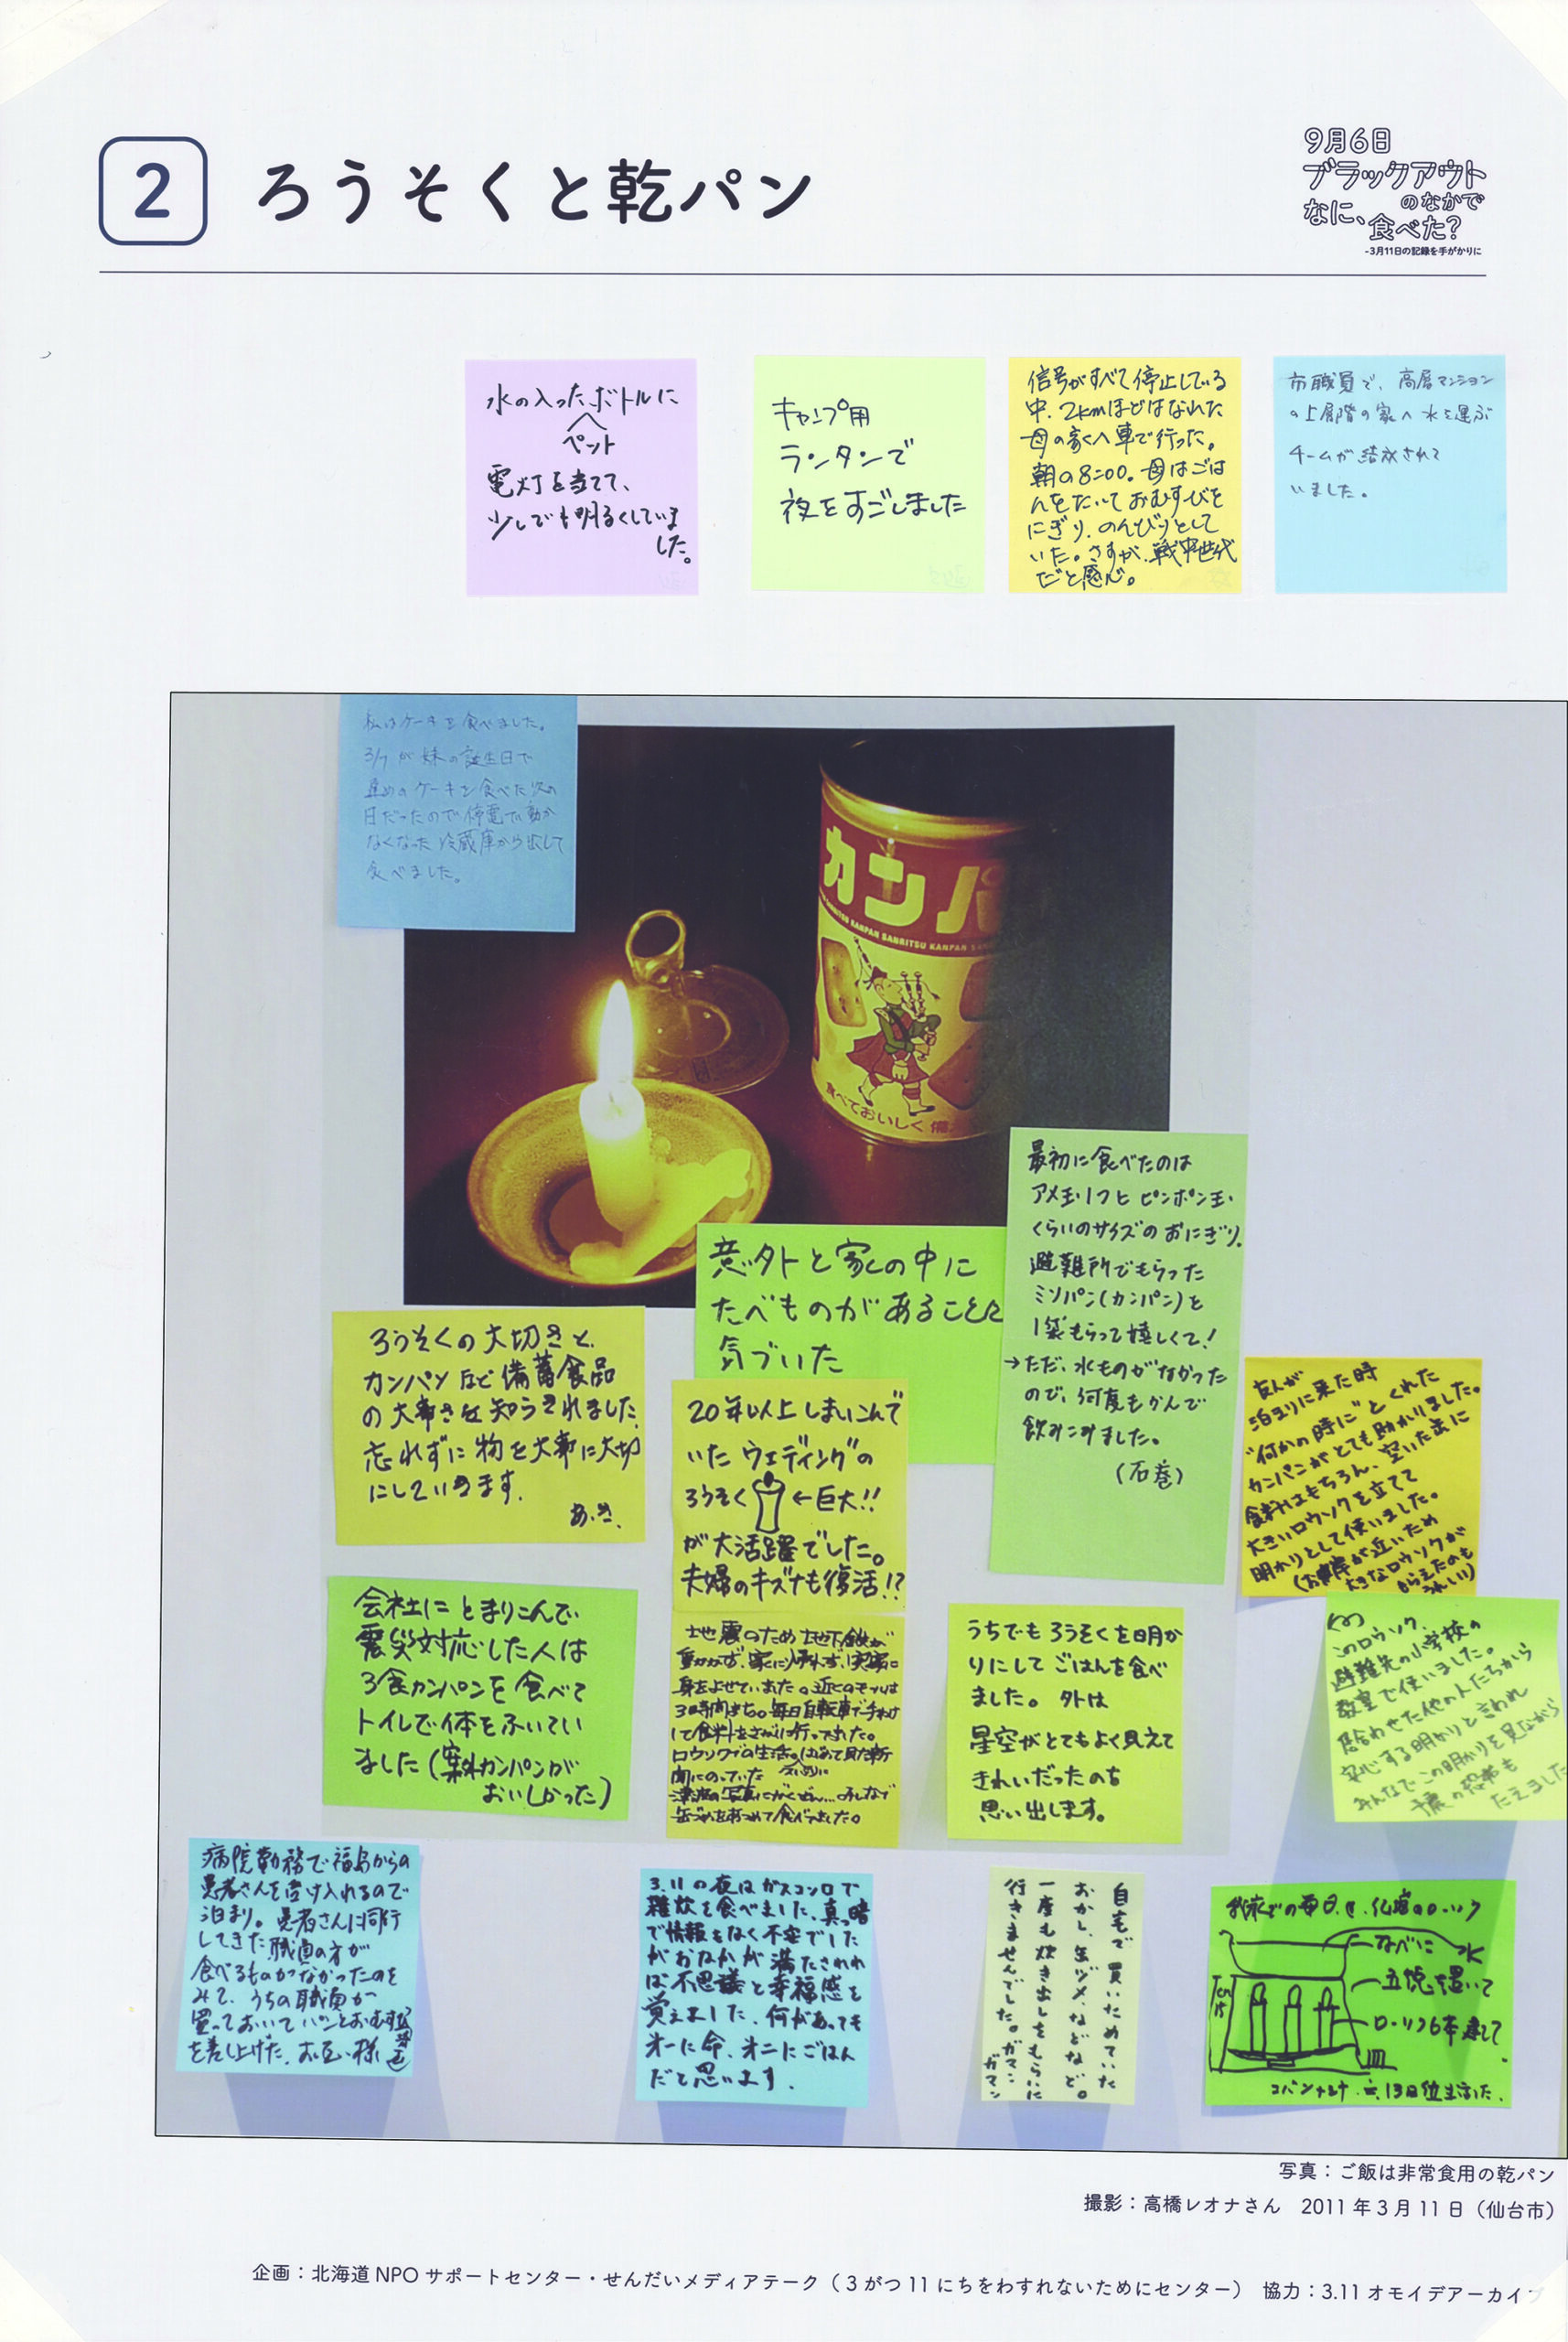 2
ろうそくと乾パン
9月6日
ブラックアウト
のなかで
なに、食べた?
-3月11日の記録を手がかりに
水の入ったボトルに
ペット
電灯を当てて、
少しでも明るくしていま
した。
キャンプ用
ランタンで
夜をすごしました
信号がすべて停止している
中、2kmほどはなれた
母の家へ車で行った。
朝の8:00。母はごは
んをたいておむすびを
にぎり、のんびりとして
いた。さすが、戦中世代
だと感心。
市職員で、高層マンション
の上層階の家へ水を運ぶ
チームが結成されて
いました。
私はケーキを食べました。
3/7が妹の誕生日で
ケーキを食べた次の
日だったので停電で動か
なくなった冷蔵庫から出して
食べました。
カンパ
SANRITSU KANPAN SANRITSU KANPAN
食べておいしく 備
最初に食べたのは
アメ玉1つと ピンポン玉
くらいのサイズの おにぎり。
避難所でもらった
ミソパン(カンパン)を
1袋もらって嬉しくて!
→ただ、水ものがなかった
ので、何度もかんで
飲みこみました。
(石巻)
意外と家の中に
たべものがあることに
気づいた
ろうそくの大切さと、
カンパンなど備蓄食品
の大事さを知らされました。
忘れずに物を大事に大切
にしていきます。
あ.き.
20年以上しまいこんで
いたウェディングの
ろうそく ←巨大!!
が大活躍でした。
夫婦のキズナも復活!?
友人が
泊まりに来た時
"何かの時に"とくれた
カンパンがとても助かりました。
食料はもちろん、空いた缶に
大きいロウソクを立てて
明かりとして使いました。
(お彼岸が近いため
大きなロウソクが
もらえたのも
うれしい)
会社にとまりこんで
震災対応した人は
3食カンパンを食べて
トイレで体をふいてい
ました(案外カンパンが
おいしかった)
地震のため地下鉄が
動かず、家に帰れず、実家に
身をよせていました。近くのモールは
3時間まち。毎日自転車で手わけ
して食料をさがしに行ってました。
ロウソクでの生活。はじめて見た新
聞にのっていた
津波の写真にがくぜん…みんなで
缶づめをあつめて食べてました。
うちでもろうそくを明か
りにしてごはんを食べ
ました。外は
星空がとてもよく見えて
きれいだったのも
思い出します。
このロウソク、
避難先の小学校の
教室で使いました。
居合わせた他の人たちから
安心する明かりと言われ
みんなでこの明かりを見ながら
余震の恐怖も
たえました
病院勤務で福島からの
患者さんを受け入れるので
泊まり。患者さんに同行
してきた職員の方が
食べるものがなかったのを
みて、うちの職員が
買っておいてパンとおむすび
を差し上げた。お互い様
3.11の夜はガスコンロで
雑炊を食べました。真っ暗
で情報もなく不安でした
がおなかが満たされれ
ば不思議と幸福感を
覚えました。何があっても
オーに命、オニにごはん
だと思います。
自宅で買いためていた
おかし、缶ヅメ、などなど。
一度も炊き出しをもらいに
行きませんでした。ガマン
ガマン
我家での毎日は、仏壇のローソク
なべに水
五徳を置いて
ローソク6本建てて
15cm
13日位生活した。
写真:ご飯は非常食用の乾パン
撮影:高橋レオナさん 2011年3月11日(仙台市)
企画:北海道NPOサポートセンター・せんだいメディアテーク(3がつ11にちをわすれないためにセンター) 協力:3.11オモイデアーカイブ